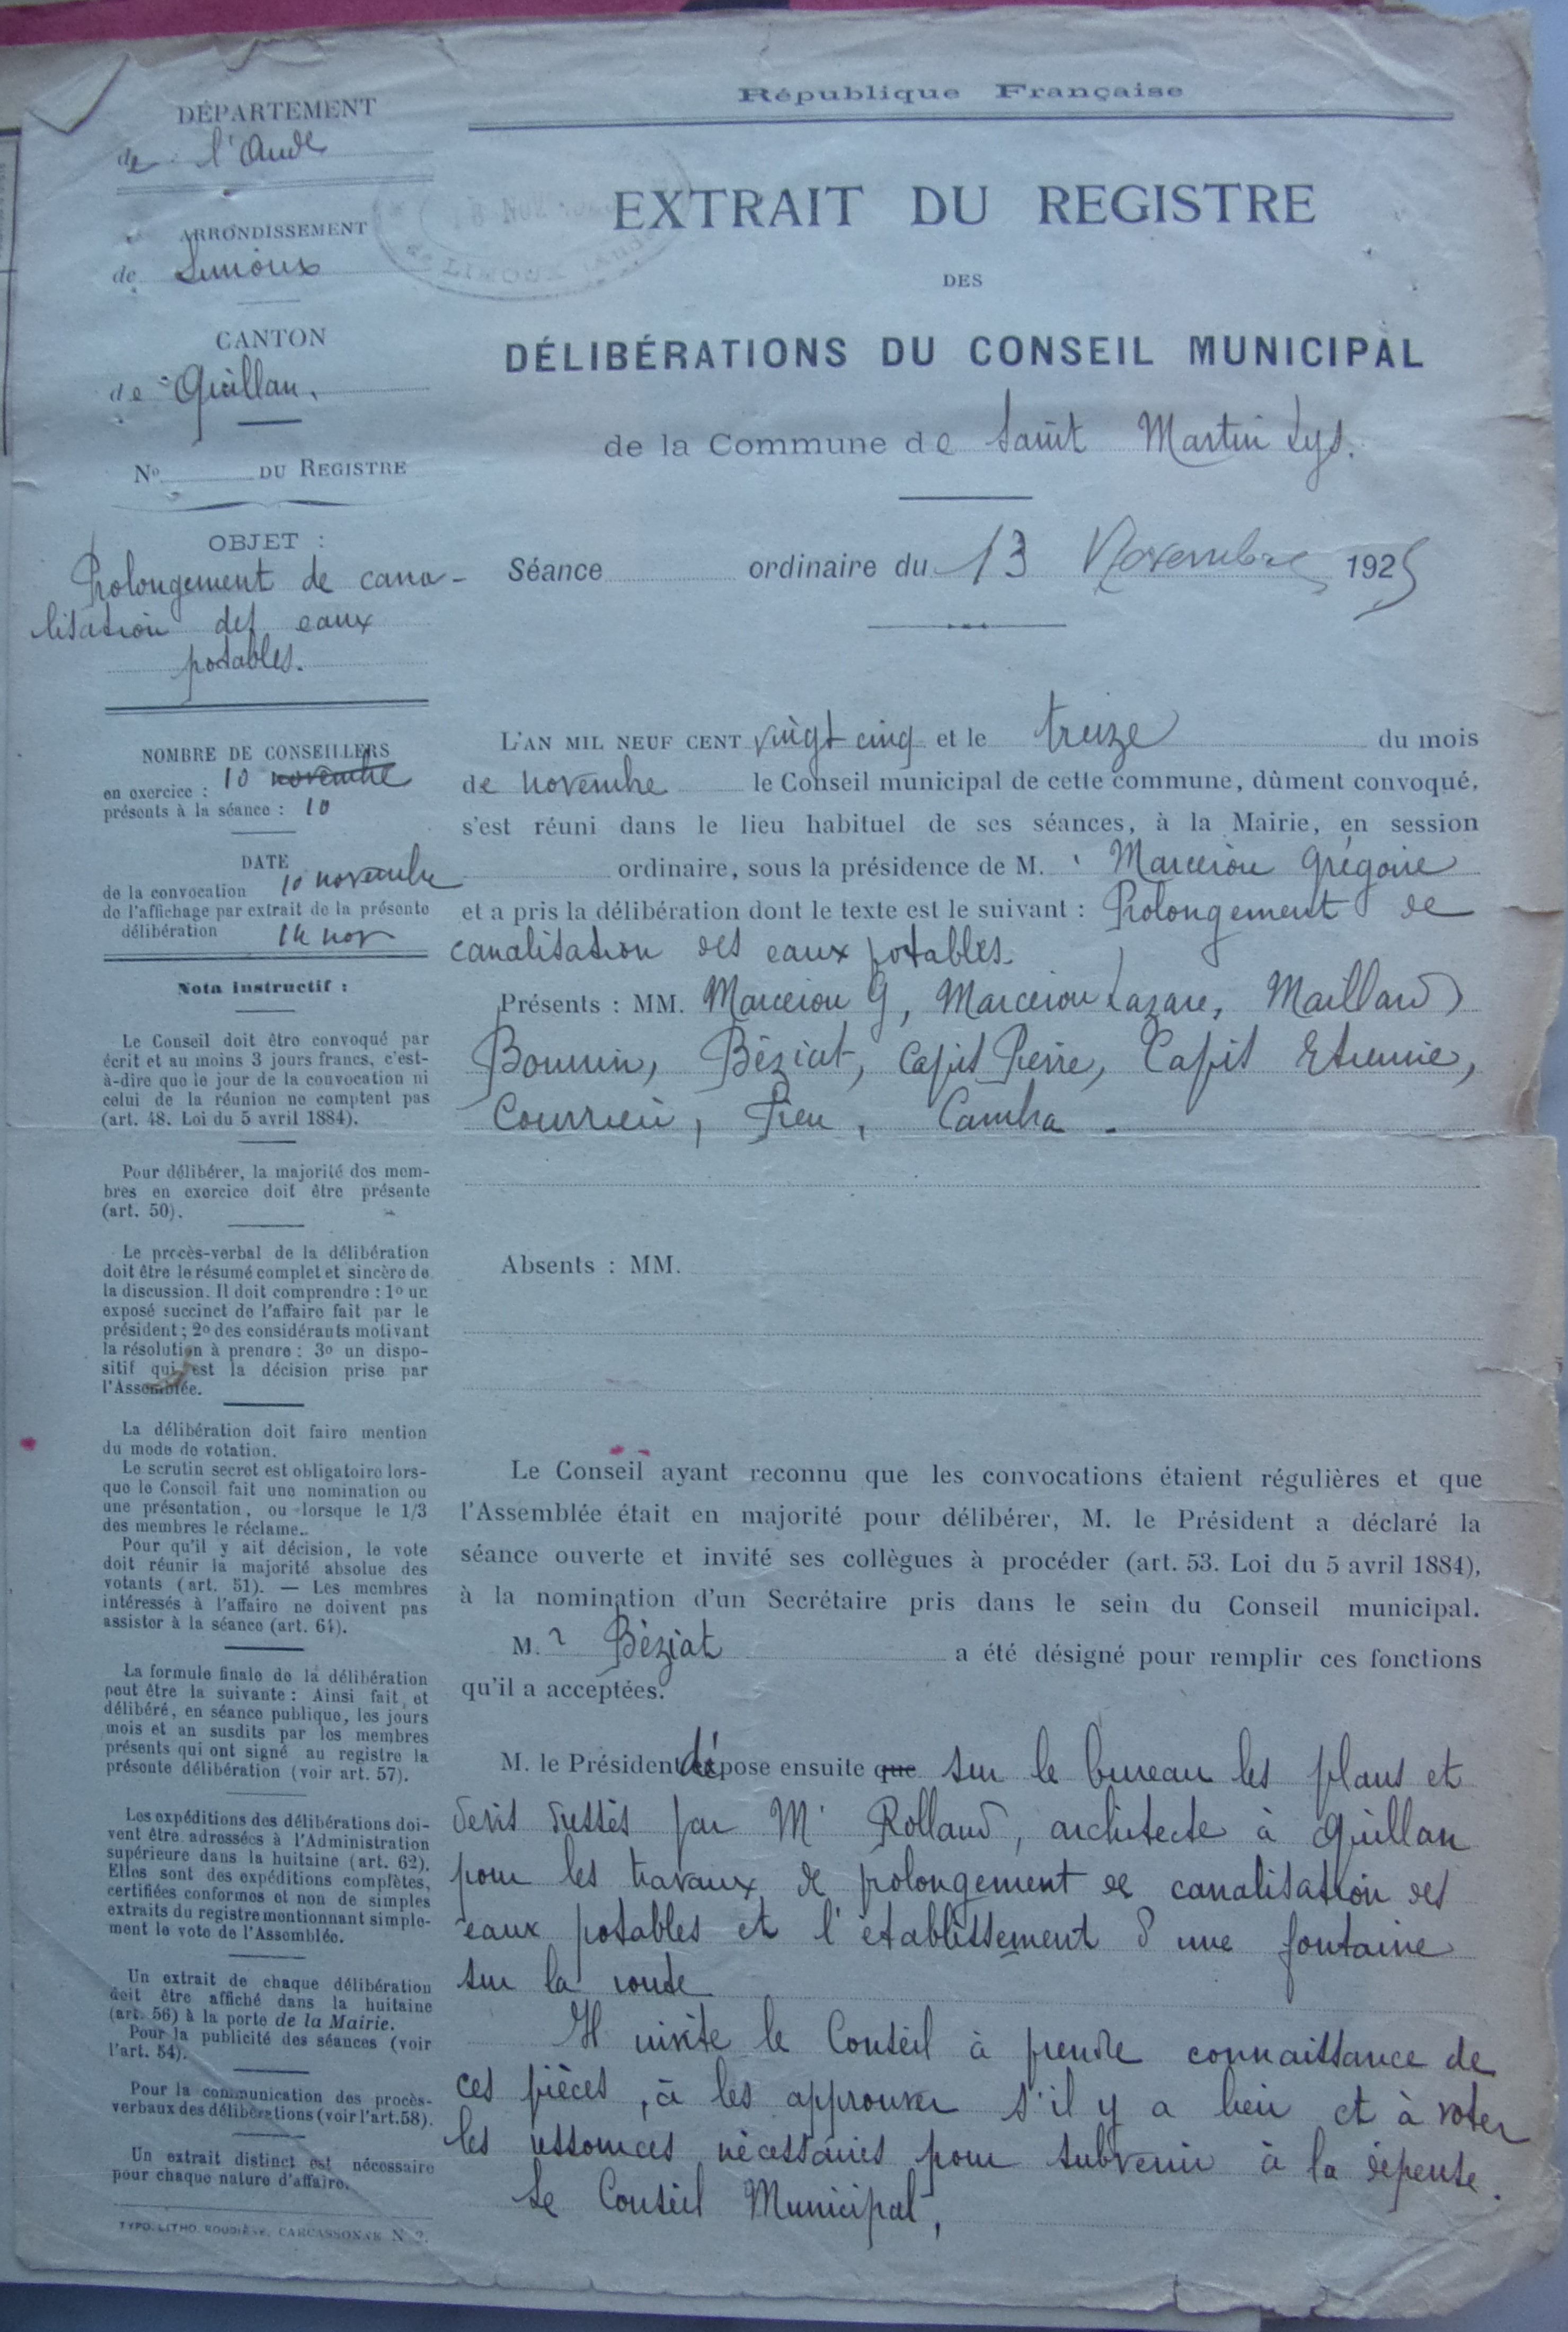 République Française
DÉPARTEMENT
de l'Aude
ARRONDISSEMENT
de Limoux
CANTON
de Quillan.
No DU REGISTRE
OBJET :
Prolongement de cana-
lisation des eaux
potables.
NOMBRE DE CONSEILLERS
en exercice : 10 novembre
présents à la séance : 10
DATE
de la convocation 10 novembre
de l'affichage par extrait de la présente
délibération 14 nov
Nota instructif :
Le Conseil doit être convoqué par
écrit et au moins 3 jours francs, c'est-
à-dire que le jour de la convocation ni
celui de la réunion ne comptent pas
(art. 48. Loi du 5 avril 1884).
Pour délibérer, la majorité des mem-
bres en exercice doit être présente
(art. 50).
Le procès-verbal de la délibération
doit être le résumé complet et sincère de
la discussion. Il doit comprendre : 1o un
exposé succinct de l'affaire fait par le
président ; 2o des considérants motivant
la résolution à prendre : 3o un dispo-
sitif qui est la décision prise par
l'Assemblée.
La délibération doit faire mention
du mode de votation.
Le scrutin secret est obligatoire lors-
que le Conseil fait une nomination ou
une présentation, ou lorsque le 1/3
des membres le réclame.
Pour qu'il y ait décision, le vote
doit réunir la majorité absolue des
votants (art. 51). — Les membres
intéressés à l'affaire ne doivent pas
assister à la séance (art. 64).
La formule finale de la délibération
peut être la suivante : Ainsi fait et
délibéré, en séance publique, les jours
mois et an susdits par les membres
présents qui ont signé au registre la
présente délibération (voir art. 57).
Les expéditions des délibérations doi-
vent être adressées à l'Administration
supérieure dans la huitaine (art. 62).
Elles sont des expéditions complètes,
certifiées conformes et non de simples
extraits du registre mentionnant simple-
ment le vote de l'Assemblée.
Un extrait de chaque délibération
doit être affiché dans la huitaine
(art. 56) à la porte de la Mairie.
Pour la publicité des séances (voir
l'art. 54).
Pour la communication des procès-
verbaux des délibérations (voir l'art.58).
Un extrait distinct est nécessaire
pour chaque nature d'affaire.
TYPO-LITHO. ROUDIÈRE, CARCASSONNE N 2.
EXTRAIT DU REGISTRE
DES
DÉLIBÉRATIONS DU CONSEIL MUNICIPAL
de la Commune de Saint Martin Lys.
Séance ordinaire du 13 Novembre 1925
L'AN MIL NEUF CENT vingt cinq et le treize du mois
de novembre le Conseil municipal de cette commune, dûment convoqué,
s'est réuni dans le lieu habituel de ses séances, à la Mairie, en session
ordinaire, sous la présidence de M. Marcerou Grégoire
et a pris la délibération dont le texte est le suivant : Prolongement de
canalisation des eaux potables.
Présents : MM. Marcerou G, Marcerou Lazare, Maillard
Béziat, Capit Pierre, Capit Etienne,
Courrieu,
Absents : MM.
Le Conseil ayant reconnu que les convocations étaient régulières et que
l'Assemblée était en majorité pour délibérer, M. le Président a déclaré la
séance ouverte et invité ses collègues à procéder (art. 53. Loi du 5 avril 1884),
à la nomination d'un Secrétaire pris dans le sein du Conseil municipal.
M. r Béziat a été désigné pour remplir ces fonctions
qu'il a acceptées.
M. le Président dépose ensuite que sur le bureau les plans et
devis dressés par Mr Rolland, architecte à Quillan
pour les travaux de prolongement de canalisation des
eaux potables et l'établissement d'une fontaine
sur la route
Il invite le Conseil à prendre connaissance de
ces pièces, à les approuver s'il y a lieu et à voter
les ressources nécessaires pour subvenir à la dépense.
Le Conseil Municipal,